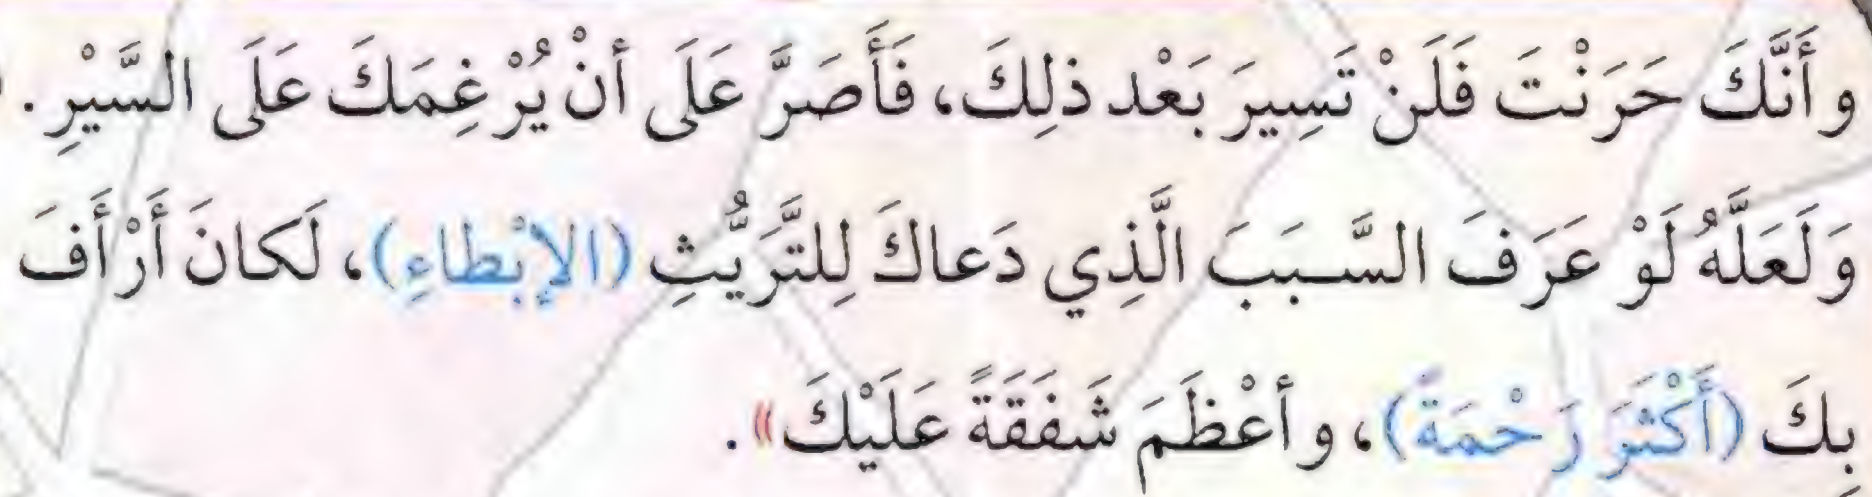 و أَنَّكَ حَرَنْتَ فَلَنْ تَسِيرَ بَعْد ذلِكَ، فَأَصَرَّ عَلَى أنْ يُرْغِمَكَ عَلَى السَّيْرِ.
وَلَعَلَّهُ لَوْ عَرَفَ السَّبَبَ الَّذِي دَعاكَ لِلتَّرَيُّثِ (الإِبْطاءِ)، لَكانَ أَرْأَفَ
بِكَ (أَكْثَرَ رَحْمَةً)، و أعْظَمَ شَفَقَةً عَلَيْكَ».